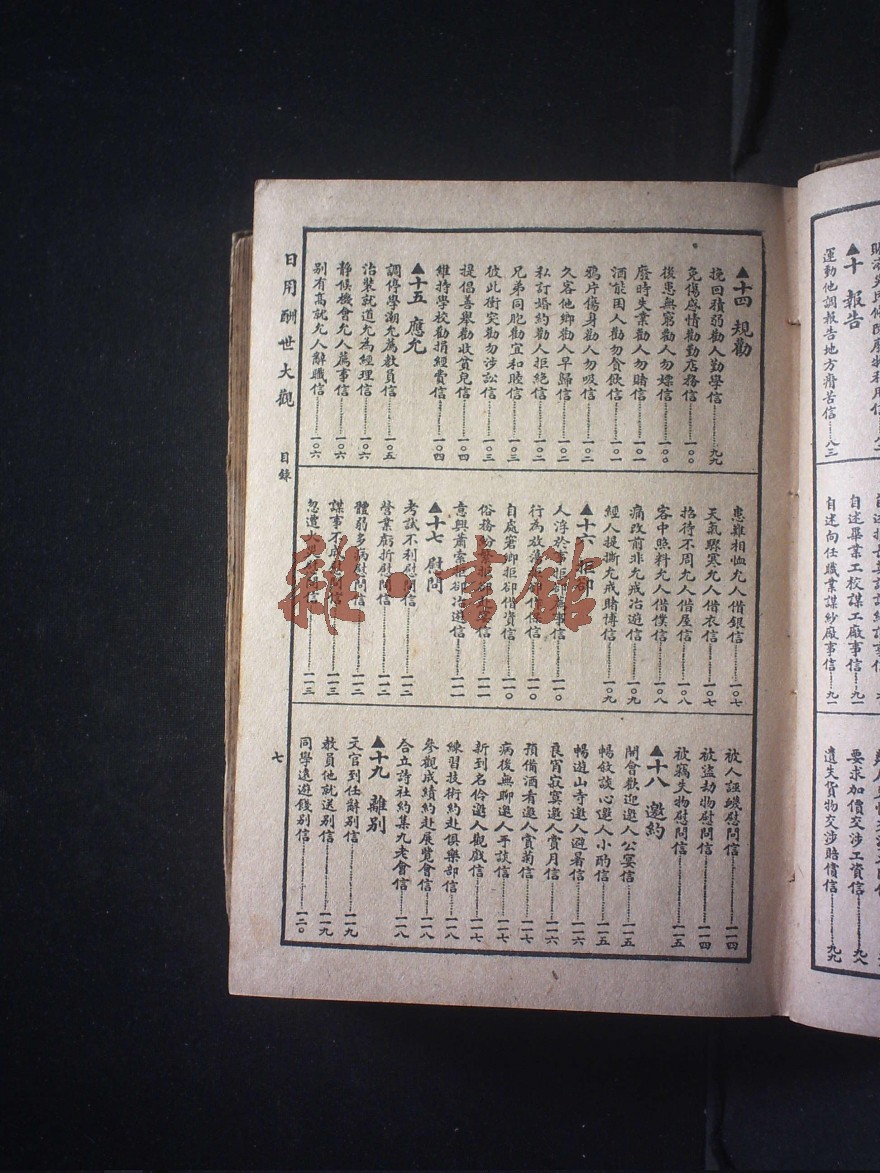 ▲十 報告
運動他調報告地方痛苦信……八三
自述畢業工校謀工廠事信……九一
自述向任職業謀紗廠事信……九一
要求加價交涉工資信……九八
遺失貨物交涉賠償信……九九
▲十四 規勸
挽回積弱勸人勤學信……九九
免傷感情勸勤店務信……一〇〇
後患無窮勸人勿嫖信……一〇〇
廢時失業勸人勿賭信……一〇一
酒能困人勸勿貪飲信……一〇一
鴉片傷身勸人勿吸信……一〇二
久客他鄉勸人早歸信……一〇二
私訂婚約勸人拒絕信……一〇二
兄弟同胞勸宜和睦信……一〇三
彼此衝突勸勿涉訟信……一〇三
提倡善舉勸收貧兒信……一〇四
維持學校勸捐經費信……一〇四
▲十五 應允
調停學潮允薦教員信……一〇五
治裝就道允為經理信……一〇六
靜候機會允人薦事信……一〇六
別有高就允人辭職信……一〇六
患難相恤允人借銀信……一〇七
天氣驟寒允人借衣信……一〇七
招待不周允人借屋信……一〇八
客中照料允人借僕信……一〇八
痛改前非允戒冶遊信……一〇九
經人提撕允戒賭博信……一〇九
▲十六 拒卻
人浮於事拒卻信……一一〇
行為放信……一一〇
自處窘鄉拒卻借資信……一一〇
俗務紛繁拒卻信……一一一
意興蕭索拒卻冶遊信……一一一
▲十七 慰問
考試不利慰問信……一一二
營業虧折慰問信……一一二
體弱多病慰問信……一一二
謀事不成慰問信……一一三
忽遭火慰問信……一一三
被人誣衊慰問信……一一四
被盜劫物慰問信……一一四
被竊失物慰問信……一一五
▲十八 邀約
開會歡迎邀人公宴信……一一五
暢敘談心邀人小酌信……一一五
暢遊山寺邀人避暑信……一一六
良宵寂寞邀人賞月信……一一六
預備酒肴邀人賞菊信……一一七
病後無聊邀人手談信……一一七
新到名伶邀人觀戲信……一一七
練習技術約赴俱樂部信……一一八
參觀成績約赴展覽會信……一一八
合立詩社約集九老會信……一一八
▲十九 離別
文官到任辭別信……一一九
教員他就送別信……一一九
同學遠遊餞別信……一二〇
日用酬世大觀 目錄
七
雜·書館